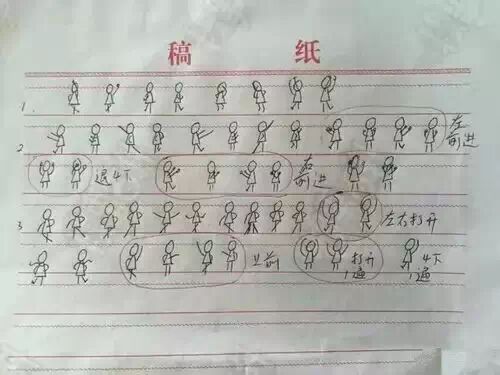 稿 纸
1.
2 左前进
退4下 右前进
3 左右打开
上前 打开1遍 4下1遍